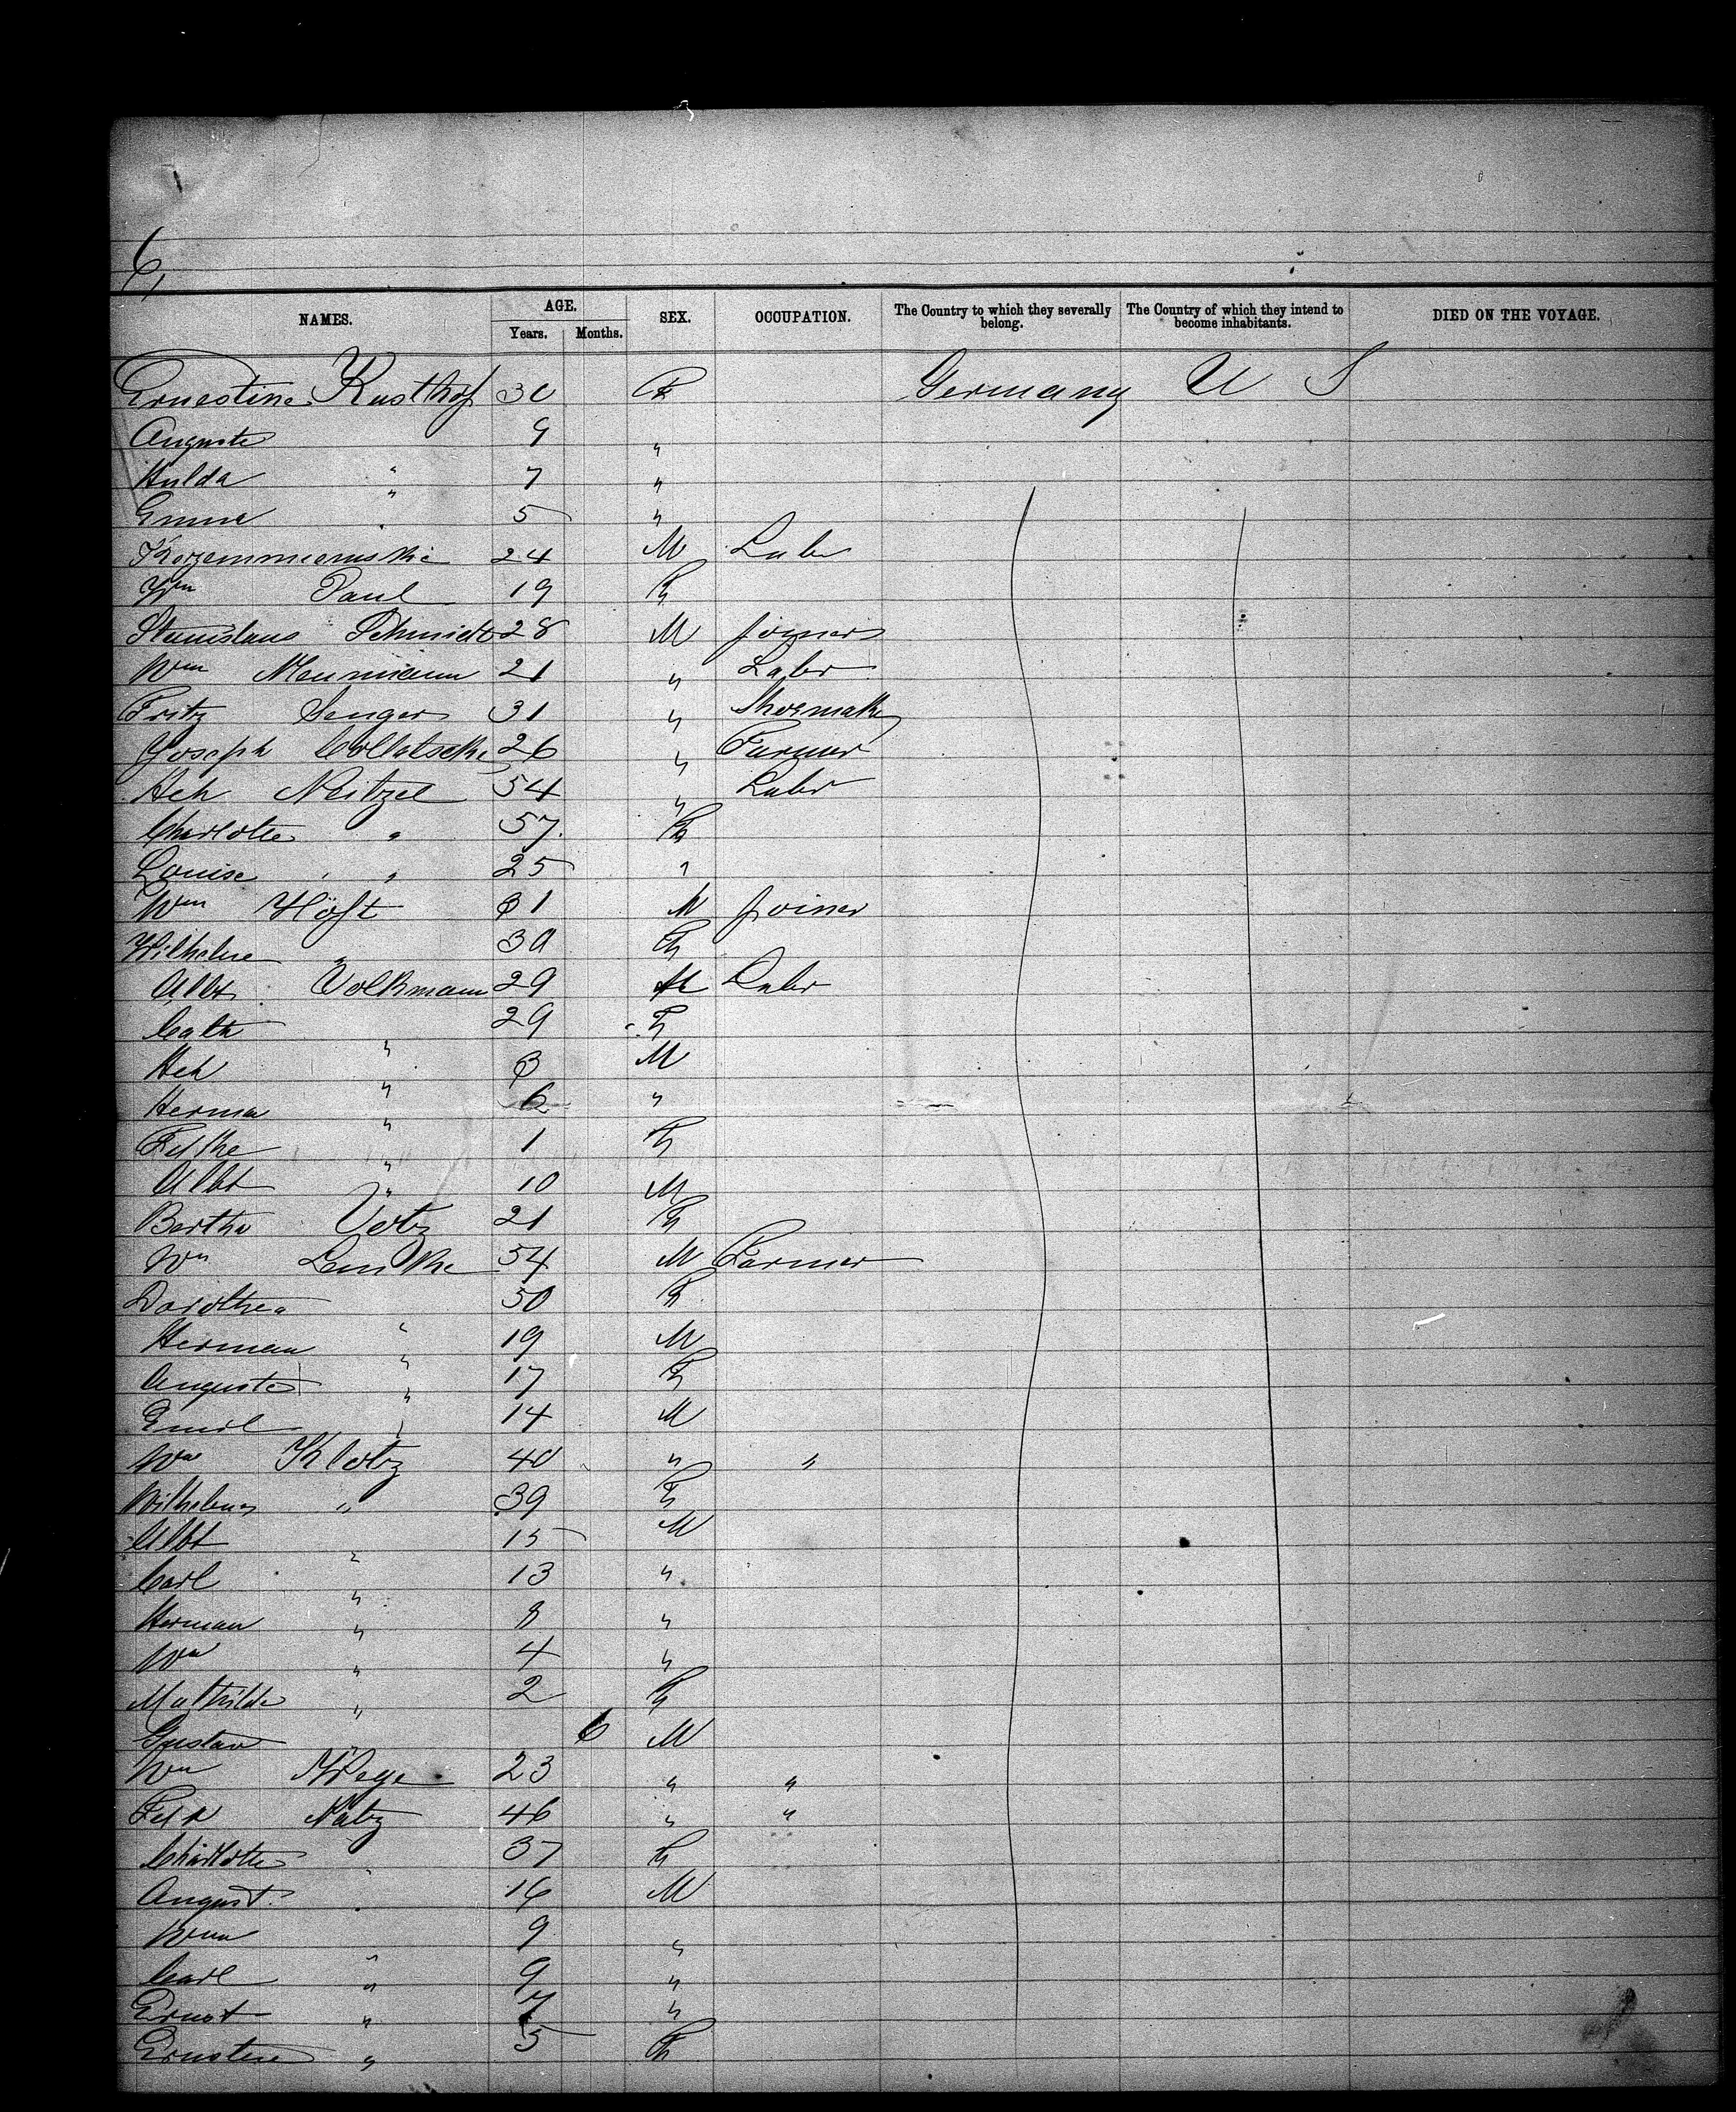 6,
NAMES. AGE. Years. Months. SEX. OCCUPATION. The Country to which they severally belong. The Country of which they intend to become inhabitants. DIED ON THE VOYAGE.
Ernestine Kusthof 30 F Germany U S
Auguste 9 "
Hulda " 7 "
Emma " 5 "
24 M Labr
Wm Paul 19 F
Stanislaus Schmidt 28 M joiner
Wm Neumann 21 " Labr
Fritz Senger 31 " Shoemaker
Joseph 26 " Farmer
Hch Neitzel 54 " Labr
Charlotte " 57 F
Louise " 25 "
Wm Höft 31 M joiner
Wilhelme " 30 F
Albt Volkmann 29 M Labr
Cath " 29 F
Hch " 8 M
Herman " 6 "
" 1 F
Albt " 10 M
Bertha Votz 21 F
Wm Lemke 54 M Farmer
Dorothea " 50 F
Herman " 19 M
Auguste " 17 F
Emil " 14 M
Wm Klotz 40 " "
Wilhelmine " 39 F
Albt " 15 M
Carl " 13 "
Herman " 8 "
Wm " 4 "
Mathilde " 2 F
Gustav " 6 M
Wm Wege 23 " "
Ferd Natz 46 " "
Charlotte " 37 F
August " 16 M
Wm " 9 "
Carl " 9 "
Ernst " 7 "
Ernstine " 5 F